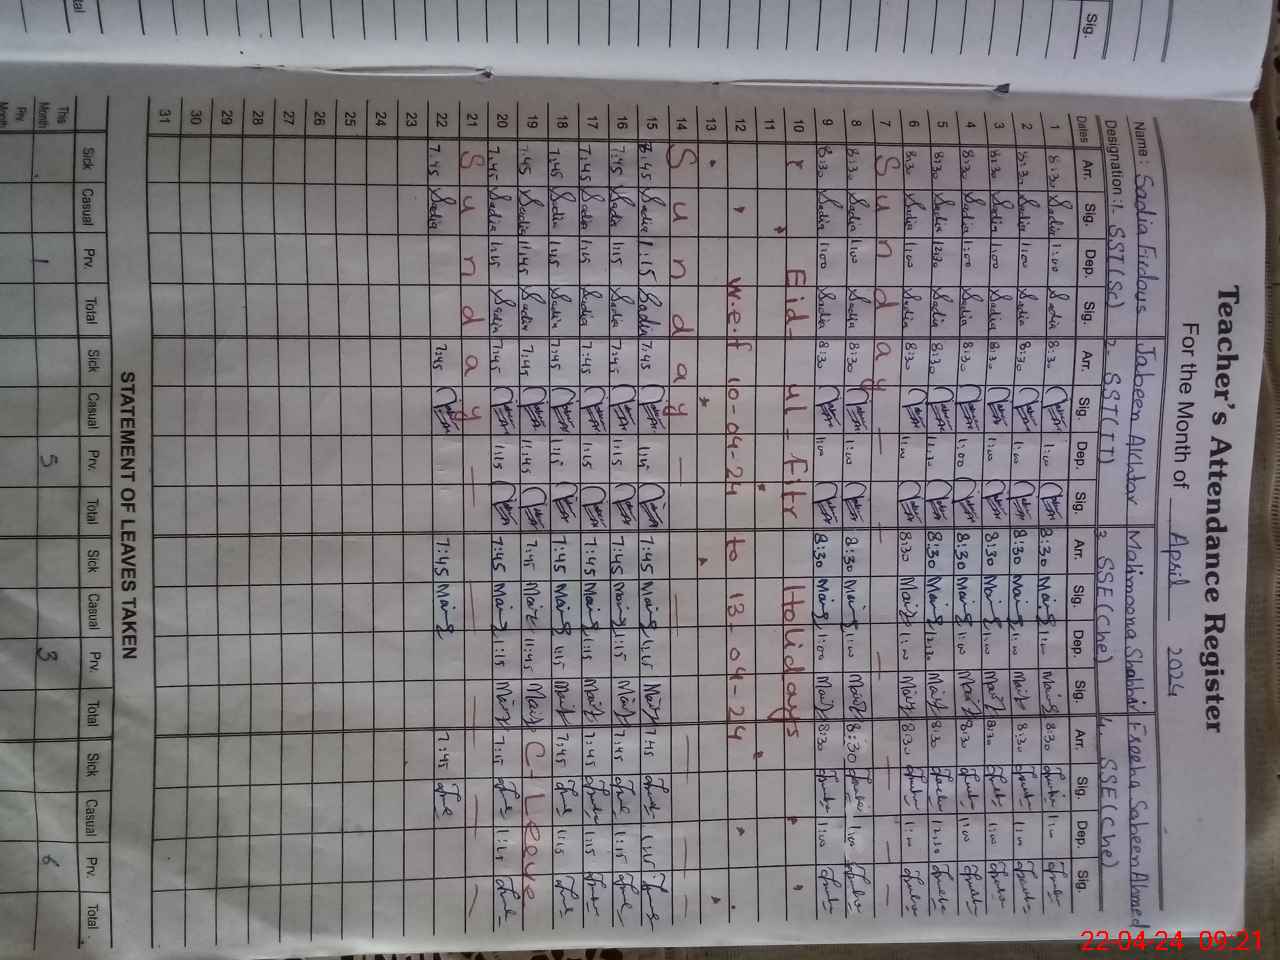 Teacher's Attendance Register
For the Month of April 2024
Name: Sadia Firdous Jabeen Akhtar Maimoona Shabbir Freeha Sabeen Ahmed
Designation: 1. SST(Sc) 2. SST(IT) 3. SSE(Che) 4. SSE(Che)
Dates Arr. Sig. Dep. Sig. Arr. Sig. Dep. Sig. Arr. Sig. Dep. Sig. Arr. Sig. Dep. Sig.
1 8:30 Sadia 1:00 Sadia 8:30 1:00 8:30 1:00 8:30 1:00
2 8:30 Sadia 1:00 Sadia 8:30 1:00 8:30 1:00 8:30 1:00
3 8:30 Sadia 1:00 Sadia 8:30 1:00 8:30 1:00 8:30 1:00
4 8:30 Sadia 1:00 Sadia 8:30 1:00 8:30 1:00 8:30 1:00
5 8:30 Sadia 12:30 Sadia 8:30 8:30 12:30 8:30 12:30
6 8:30 Sadia 1:00 Sadia 8:30 1:00 8:30 1:00 8:30 1:00
7 Sunday
8 8:30 Sadia 1:00 Sadia 8:30 1:00 8:30 1:00 8:30 1:00
9 8:30 Sadia 1:00 Sadia 8:30 1:00 8:30 1:00 8:30 1:00
10 Eid-ul-Fitr Holidays
11
12 w.e.f 10-04-24 to 13-04-24
13
14 Sunday
15 8:45 Sadia 1:15 Sadia 7:45 1:15 7:45 1:15 7:45 1:15
16 7:45 Sadia 1:15 Sadia 7:45 1:15 7:45 1:15 7:45 1:15
17 7:45 Sadia 1:15 Sadia 7:45 1:15 7:45 1:15 7:45 1:15
18 7:45 Sadia 1:15 Sadia 7:45 1:15 7:45 1:15 7:45 1:15
19 7:45 Sadia 11:45 Sadia 7:45 11:45 7:45 11:45 C-Leave
20 7:45 Sadia 1:15 Sadia 7:45 1:15 7:45 1:15 7:45 1:15
21 Sunday
22 7:45 Sadia 7:45 7:45 7:45
23
24
25
26
27
28
29
30
31
STATEMENT OF LEAVES TAKEN
Sick Casual Prv. Total Sick Casual Prv. Total Sick Casual Prv. Total Sick Casual Prv. Total
This Month 1 5 3 6
Prv. Month
Sig.
22-04-24 09:21